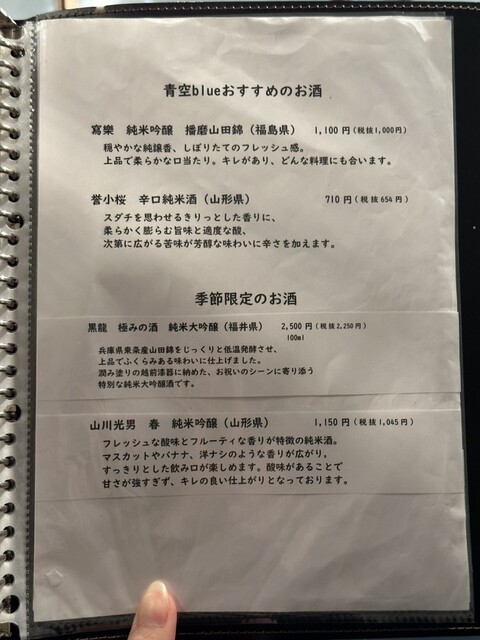 青空blueおすすめのお酒
寫樂 純米吟醸 播磨山田錦（福島県） 1,100 円（税抜1,000円）
穏やかな純醸香、しぼりたてのフレッシュ感。
上品で柔らかな口当たり。キレがあり、どんな料理にも合います。
誉小桜 辛口純米酒（山形県） 710 円（税抜 654 円）
スダチを思わせるきりっとした香りに、
柔らかく膨らむ旨味と適度な酸、
次第に広がる苦味が芳醇な味わいに辛さを加えます。
季節限定のお酒
黒龍 極みの酒 純米大吟醸（福井県） 2,500 円（税抜2,250円）
100ml
兵庫県東条産山田錦をじっくりと低温発酵させ、
上品でふくらみある味わいに仕上げました。
潤み塗りの越前漆器に納めた、お祝いのシーンに寄り添う
特別な純米大吟醸酒です。
山川光男 春 純米吟醸（山形県） 1,150 円（税抜1,045円）
フレッシュな酸味とフルーティな香りが特徴の純米酒。
マスカットやバナナ、洋ナシのような香りが広がり，
すっきりとした飲み口が楽しめます。酸味があることで
甘さが強すぎず、キレの良い仕上がりとなっております。